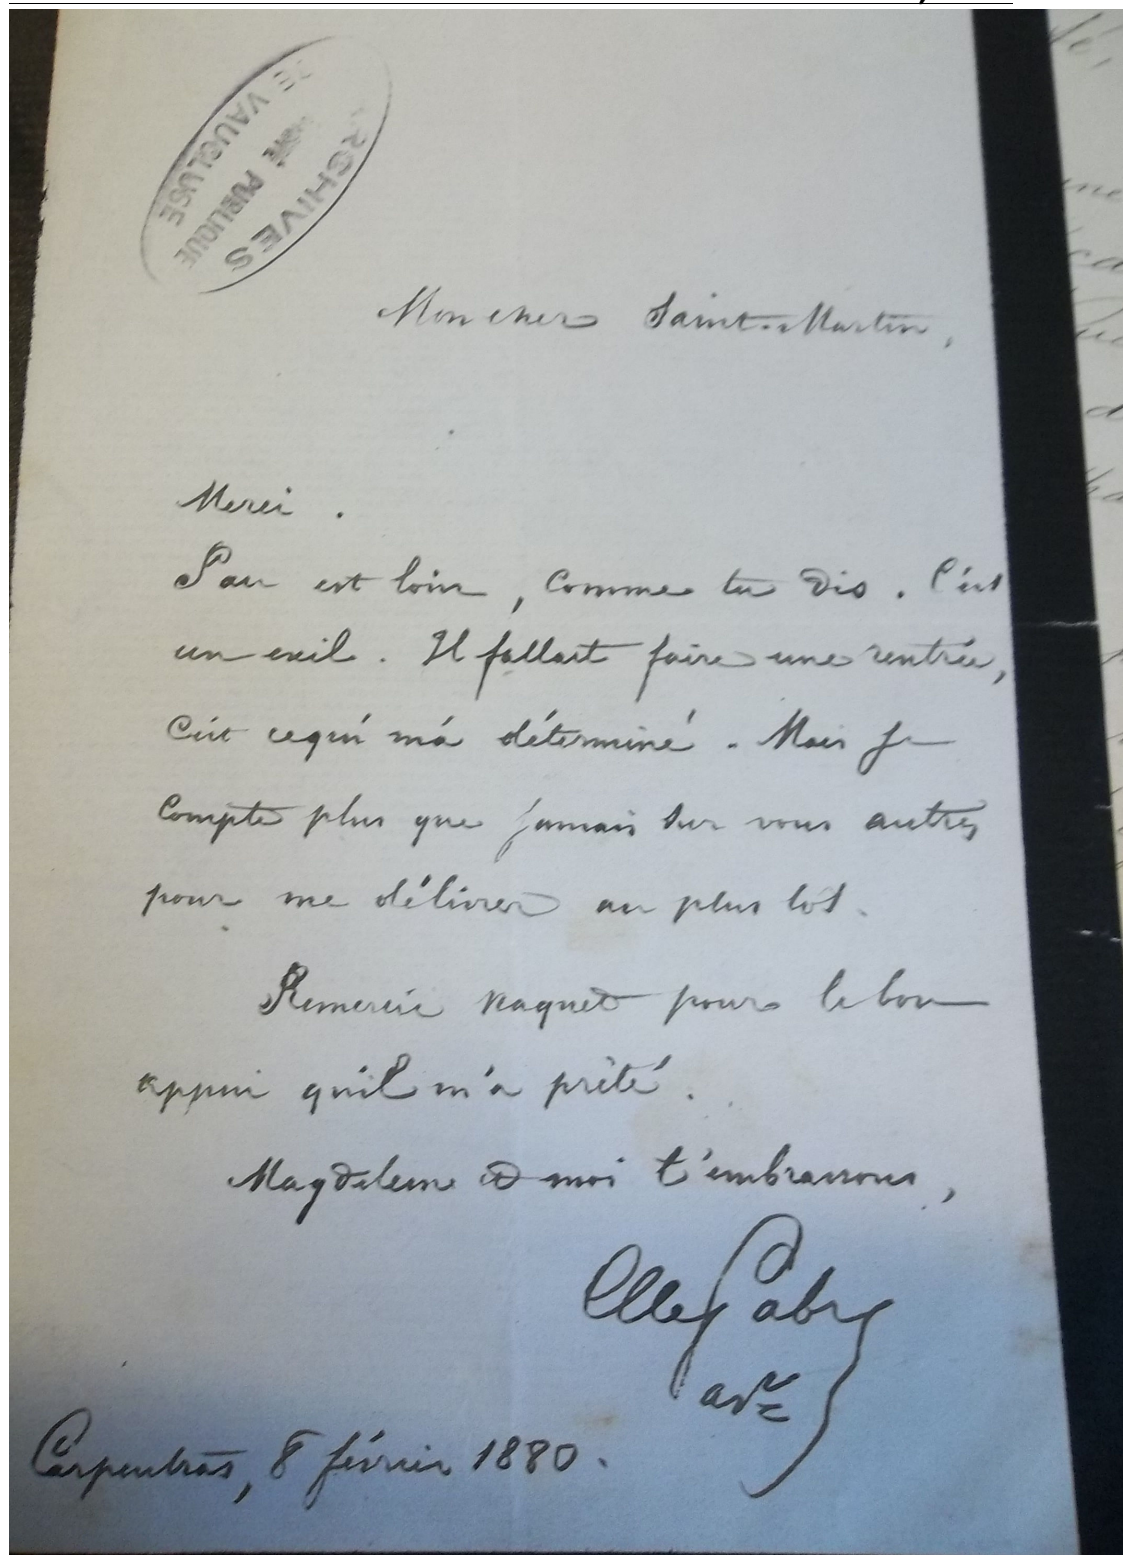 ARCHIVES
PUBLIQUE
DE VAUCLUSE
Mon cher Saint-Martin,
Merci.
Pau est loin, comme tu dis. C'est
un exil. Il fallait faire une rentrée,
C'est ce qui m'a déterminé. Mais je
compte plus que jamais sur vous autres
pour me délivrer au plus tôt.
Remercie Naquet pour le bon
appui qu'il m'a prêté.
Magdeleine et moi t'embrassons,
Carpentras, 8 février 1880.